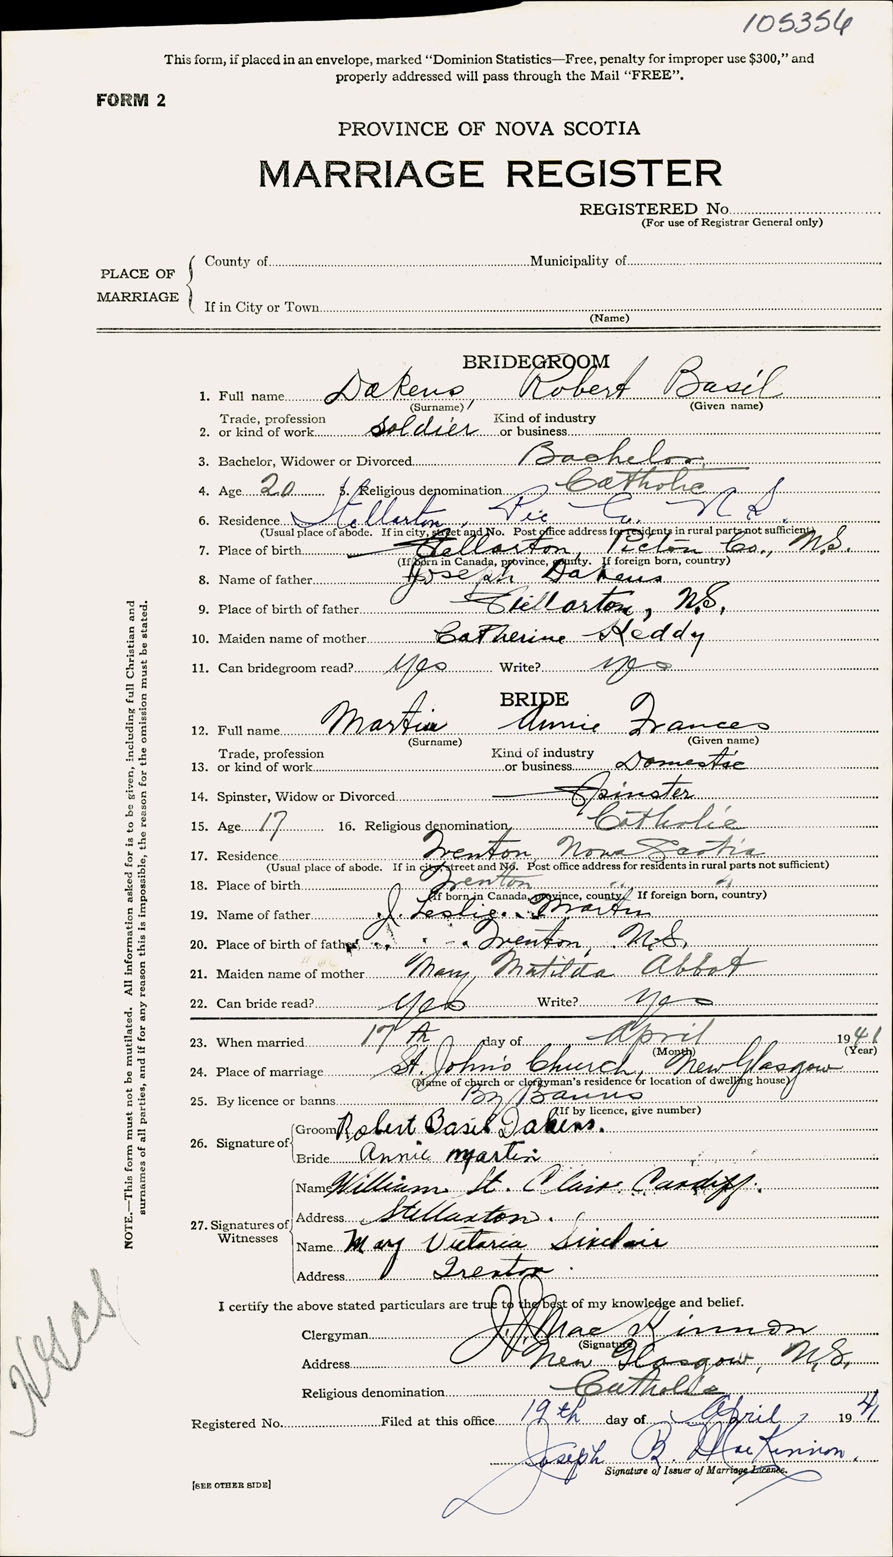 105356
This form, if placed in an envelope, marked "Dominion Statistics—Free, penalty for improper use $300," and
properly addressed will pass through the Mail "FREE".
FORM 2
PROVINCE OF NOVA SCOTIA
MARRIAGE REGISTER
REGISTERED No.
(For use of Registrar General only)
PLACE OF MARRIAGE
County of Municipality of
If in City or Town
(Name)
BRIDEGROOM
1. Full name Dakens, Robert Basil
(Surname) (Given name)
2. Trade, profession or kind of work soldier Kind of industry or business
3. Bachelor, Widower or Divorced Bachelor
4. Age 20 5. Religious denomination Catholic
6. Residence Stellarton, Pic Co. N.S.
(Usual place of abode. If in city, street and No. Post office address for residents in rural parts not sufficient)
7. Place of birth Stellarton, Pictou Co., N.S.
(If born in Canada, province, county. If foreign born, country)
8. Name of father Joseph Dakens
9. Place of birth of father Stellarton, N.S.
10. Maiden name of mother Catherine Keddy
11. Can bridegroom read? yes Write? yes
BRIDE
12. Full name Martin Annie Frances
(Surname) (Given name)
13. Trade, profession or kind of work Kind of industry or business Domestic
14. Spinster, Widow or Divorced Spinster
15. Age 17 16. Religious denomination Catholic
17. Residence Trenton Nova Scotia
(Usual place of abode. If in city, street and No. Post office address for residents in rural parts not sufficient)
18. Place of birth Trenton " "
(If born in Canada, province, county. If foreign born, country)
19. Name of father J. Leslie Martin
20. Place of birth of father Trenton, N.S.
21. Maiden name of mother Mary Matilda Abbot
22. Can bride read? Yes Write? Yes
23. When married 17th day of April 1941
(Month) (Year)
24. Place of marriage St. John's Church, New Glasgow
(Name of church or clergyman's residence or location of dwelling house)
25. By licence or banns By Banns
(If by licence, give number)
26. Signature of Groom Robert Basil Dakens.
Bride Annie Martin
27. Signatures of Witnesses
Name William St. Clair Cardiff.
Address Stellarton.
Name Mary Victoria Sinclair
Address Trenton.
I certify the above stated particulars are true to the best of my knowledge and belief.
Clergyman J. B. MacKinnon
(Signature)
Address New Glasgow, N.S.
Religious denomination Catholic
Registered No. Filed at this office 19th day of April 1941
Joseph B. MacKinnon.
Signature of Issuer of Marriage Licence.
[SEE OTHER SIDE]
NOTE.—This form must not be mutilated. All information asked for is to be given, including full Christian and
surnames of all parties, and if for any reason this is impossible, the reason for the omission must be stated.